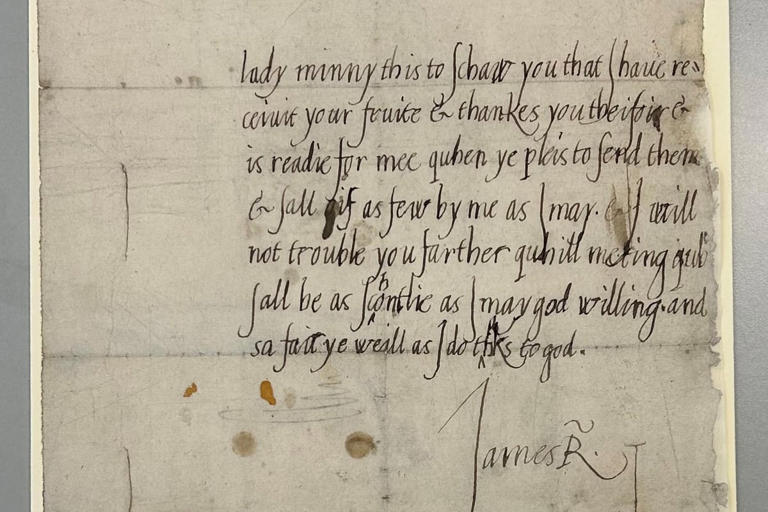 lady minny this to schaw you that I haue re,
ceiuit your fruite & thankes you theifoir &
is readie for mee quhen ye pleis to send them
& sall gif as few by me as I may. & I will
not trouble you farther quhill meting quh
sall be as schortlie as I may god willing. and
sa fair ye weill as I do thks to god.
James R.